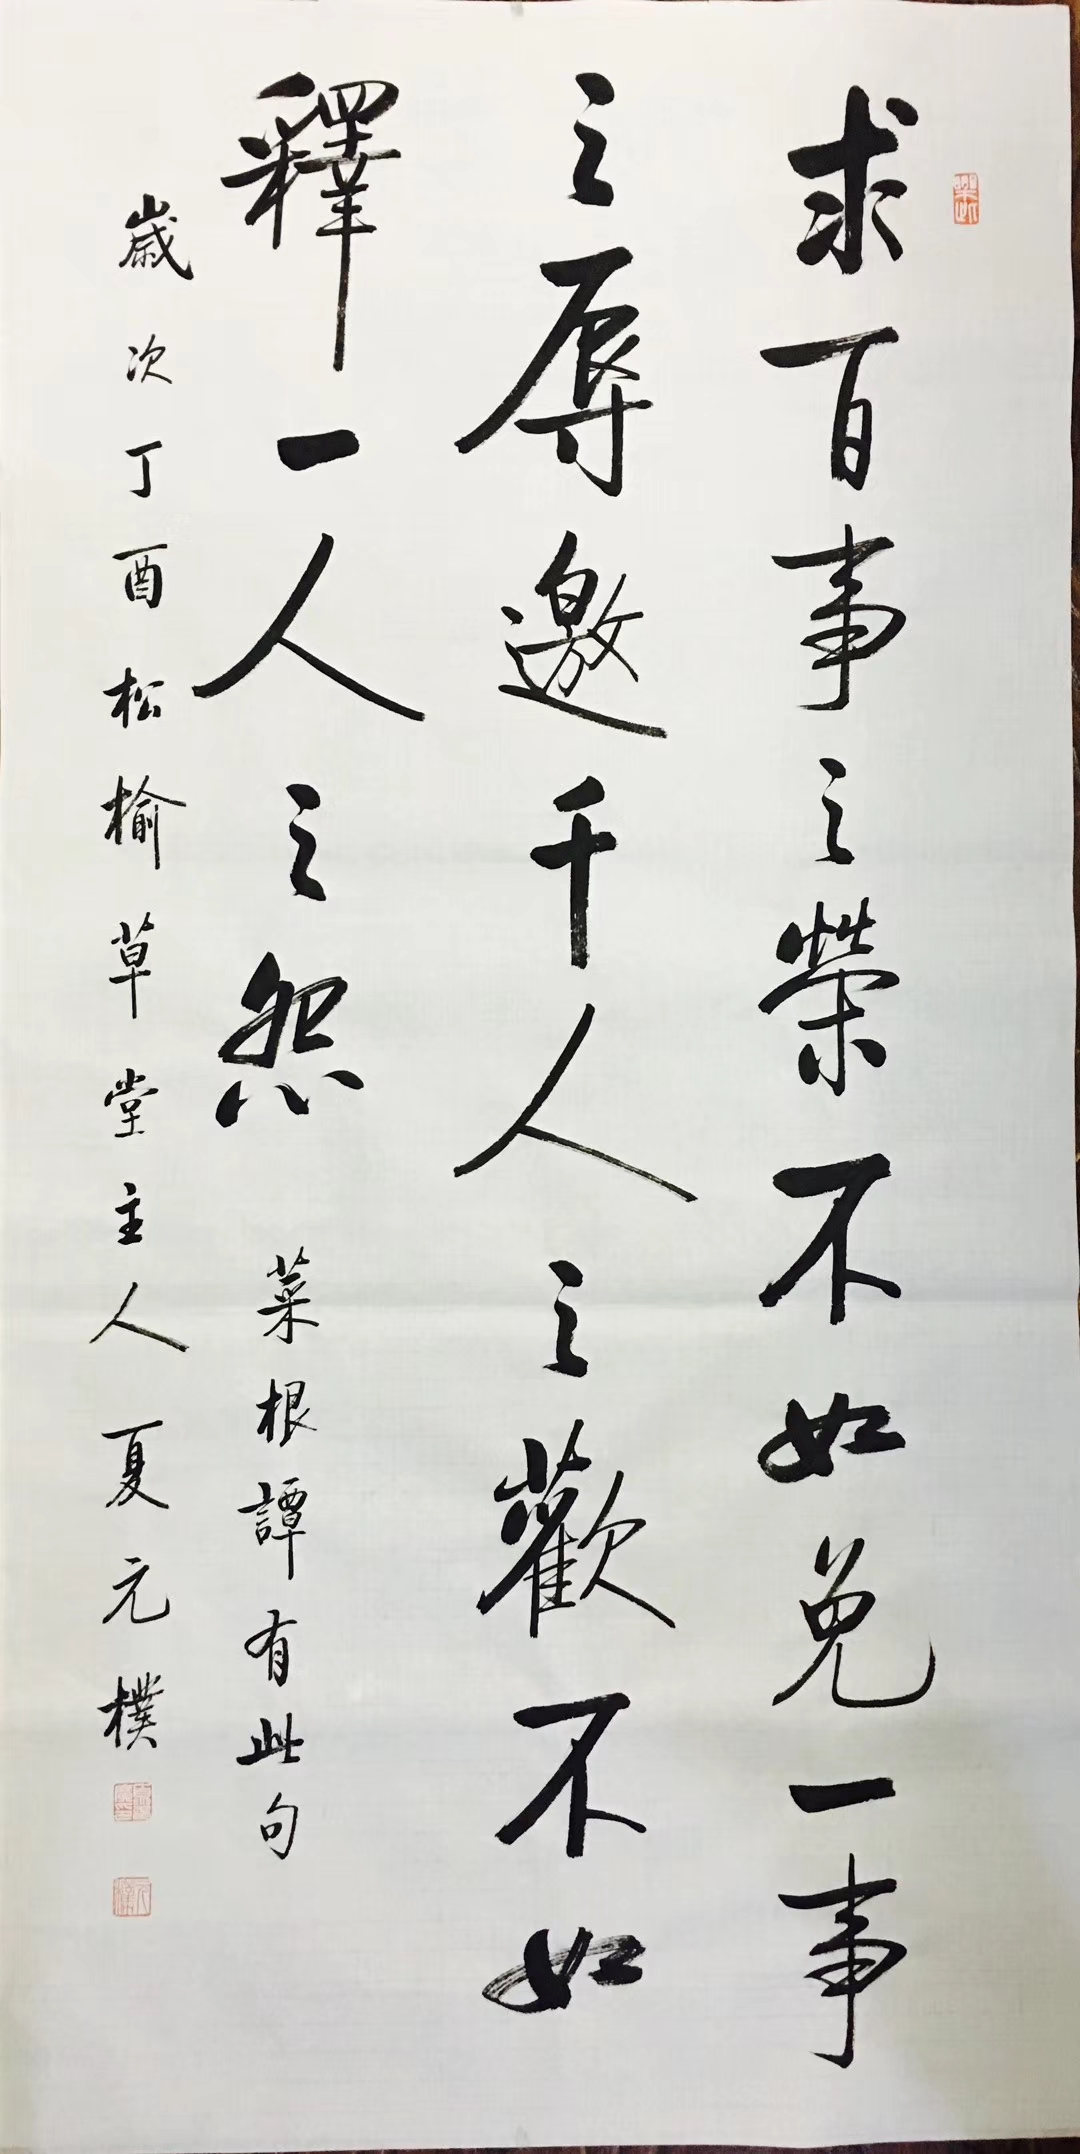 求百事之榮不如免一事
之辱邀千人之歡不如
釋一人之怨
菜根譚有此句
歲次丁酉松榆草堂主人夏元樸